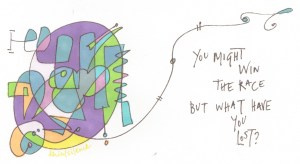 YOU MIGHT
WIN
THE RACE
BUT WHAT HAVE
YOU
LOST?